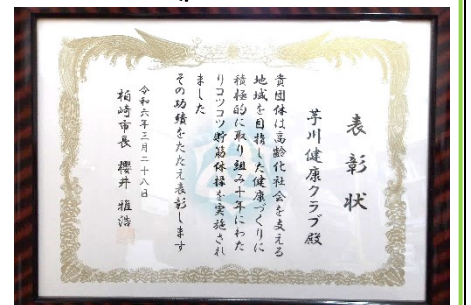 表彰状
芋川健康クラブ殿
貴団体は高齢化社会を支える
地域を目指した健康づくりに
積極的に取り組み十年にわた
りコツコツ貯筋体操を実施され
ました
その功績をたたえ表彰します
令和六年三月二十八日
柏崎市長 櫻井雅浩